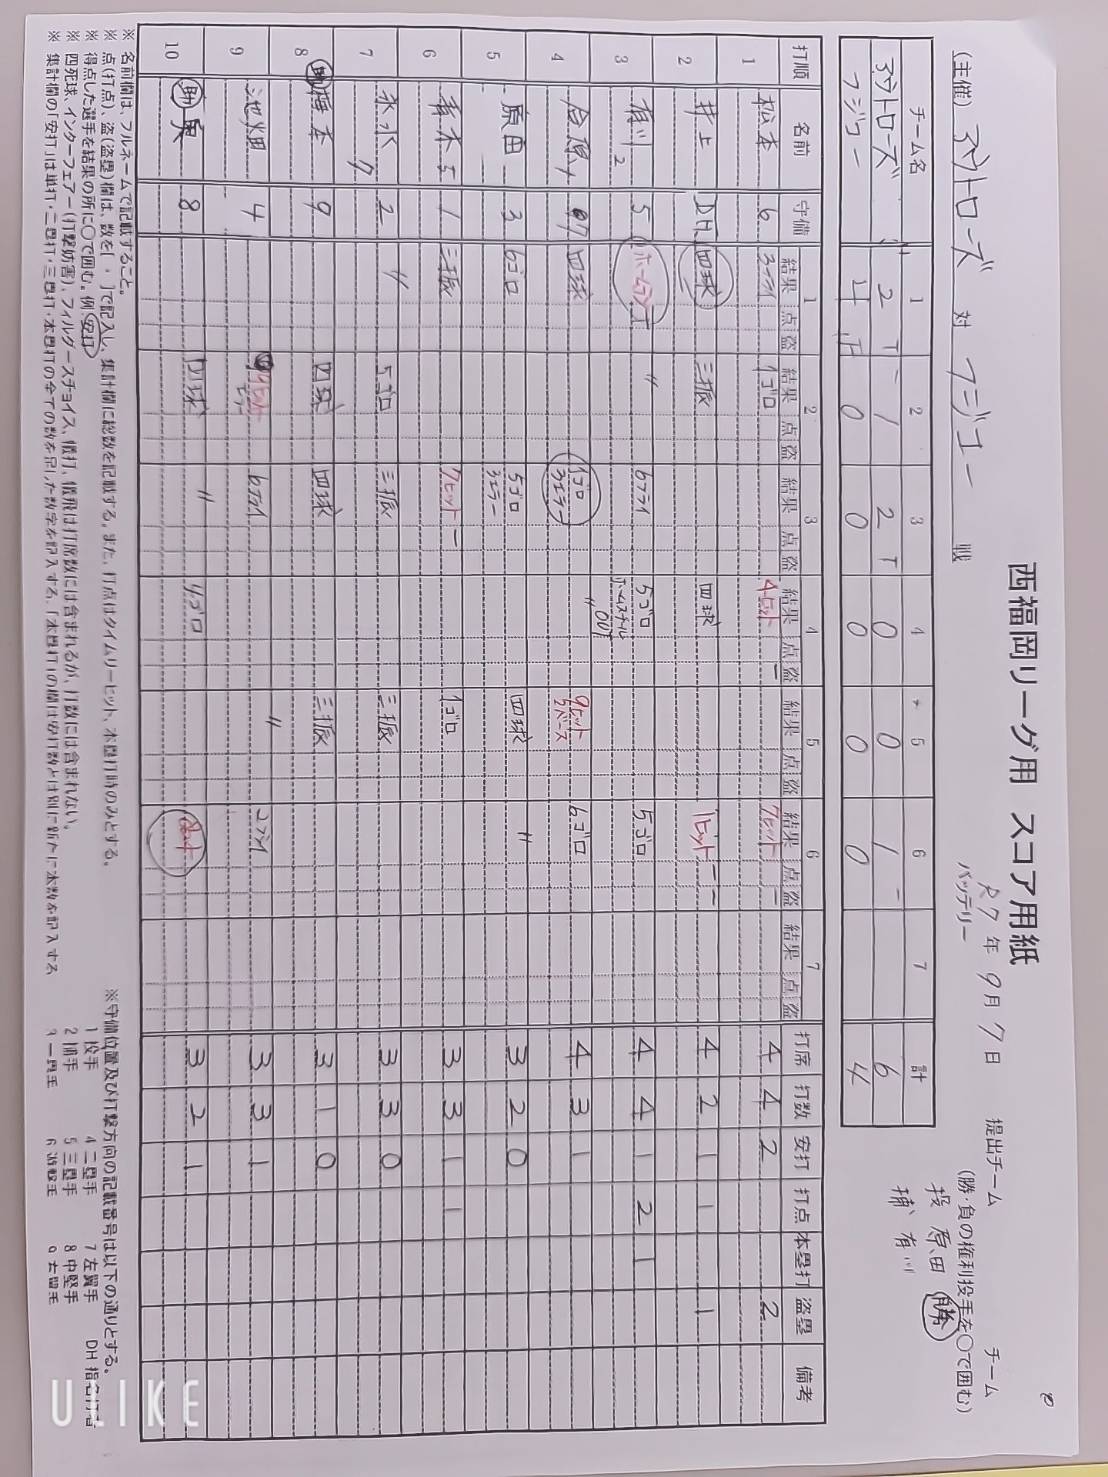 西福岡リーグ用 スコア用紙
R7年 9月 7日
提出チーム チーム
(主催) 対 フジコー 戦
バッテリー
(勝・負の権利投手を〇で囲む)
投 原田 勝
捕 有川
チーム名 1 2 3 4 5 6 7 計
2 1 2 0 0 1 6
フジコー 4 0 0 0 0 0 4
打順 名前 守備 1 2 3 4 5 6 7 打席 打数 安打 打点 本塁打 盗塁 備考
結果 点 盗 結果 点 盗 結果 点 盗 結果 点 盗 結果 点 盗 結果 点 盗 結果 点 盗
1 松本 6 3フライ 1ゴロ 4ヒット 7ヒット 4 4 2 2
2 井上 DH 四球 三振 四球 1ヒット 4 2 1 1 1
3 有川 5 ホームラン 〃 6フライ 5ゴロ 5ゴロ 4 4 1 2 1
4 四球 1ゴロ 9ヒット 6ゴロ 4 3 1
5 原田 3 6ゴロ 5ゴロ 四球 〃 3 2 0
6 1 三振 7ヒット 1ゴロ 3 3 1 1
7 2 〃 5ゴロ 三振 三振 3 3 0
8 助 9 四球 四球 三振 3 1 0
9 池畑 4 6フライ 〃 2フライ 3 3 1
10 助 8 四球 〃 4ゴロ 3 2 1
※ 名前欄は、フルネームで記載すること。
※ 点(打点)、盗(盗塁)欄は、数を[ ・ ]で記入し、集計欄に総数を記載する。また、打点はタイムリーヒット、本塁打時のみとする。
※ 得点した選手を結果の所に〇で囲む。例 安打
※ 四死球、インターフェアー(打撃妨害)、フィルダースチョイス、犠打、犠飛は打席数には含まれるが、打数には含まれない。
※ 集計欄の「安打」は単打・二塁打・三塁打・本塁打の全ての数を足した数字を記入する。「本塁打」の欄は安打数とは別に新たに本数を記入する
※守備位置及び打撃方向の記載番号は以下の通りとする。
1 投手 4 二塁手 7 左翼手 DH 指名打者
2 捕手 5 三塁手 8 中堅手
3 一塁手 6 遊撃手 9 右翼手
ULIKE